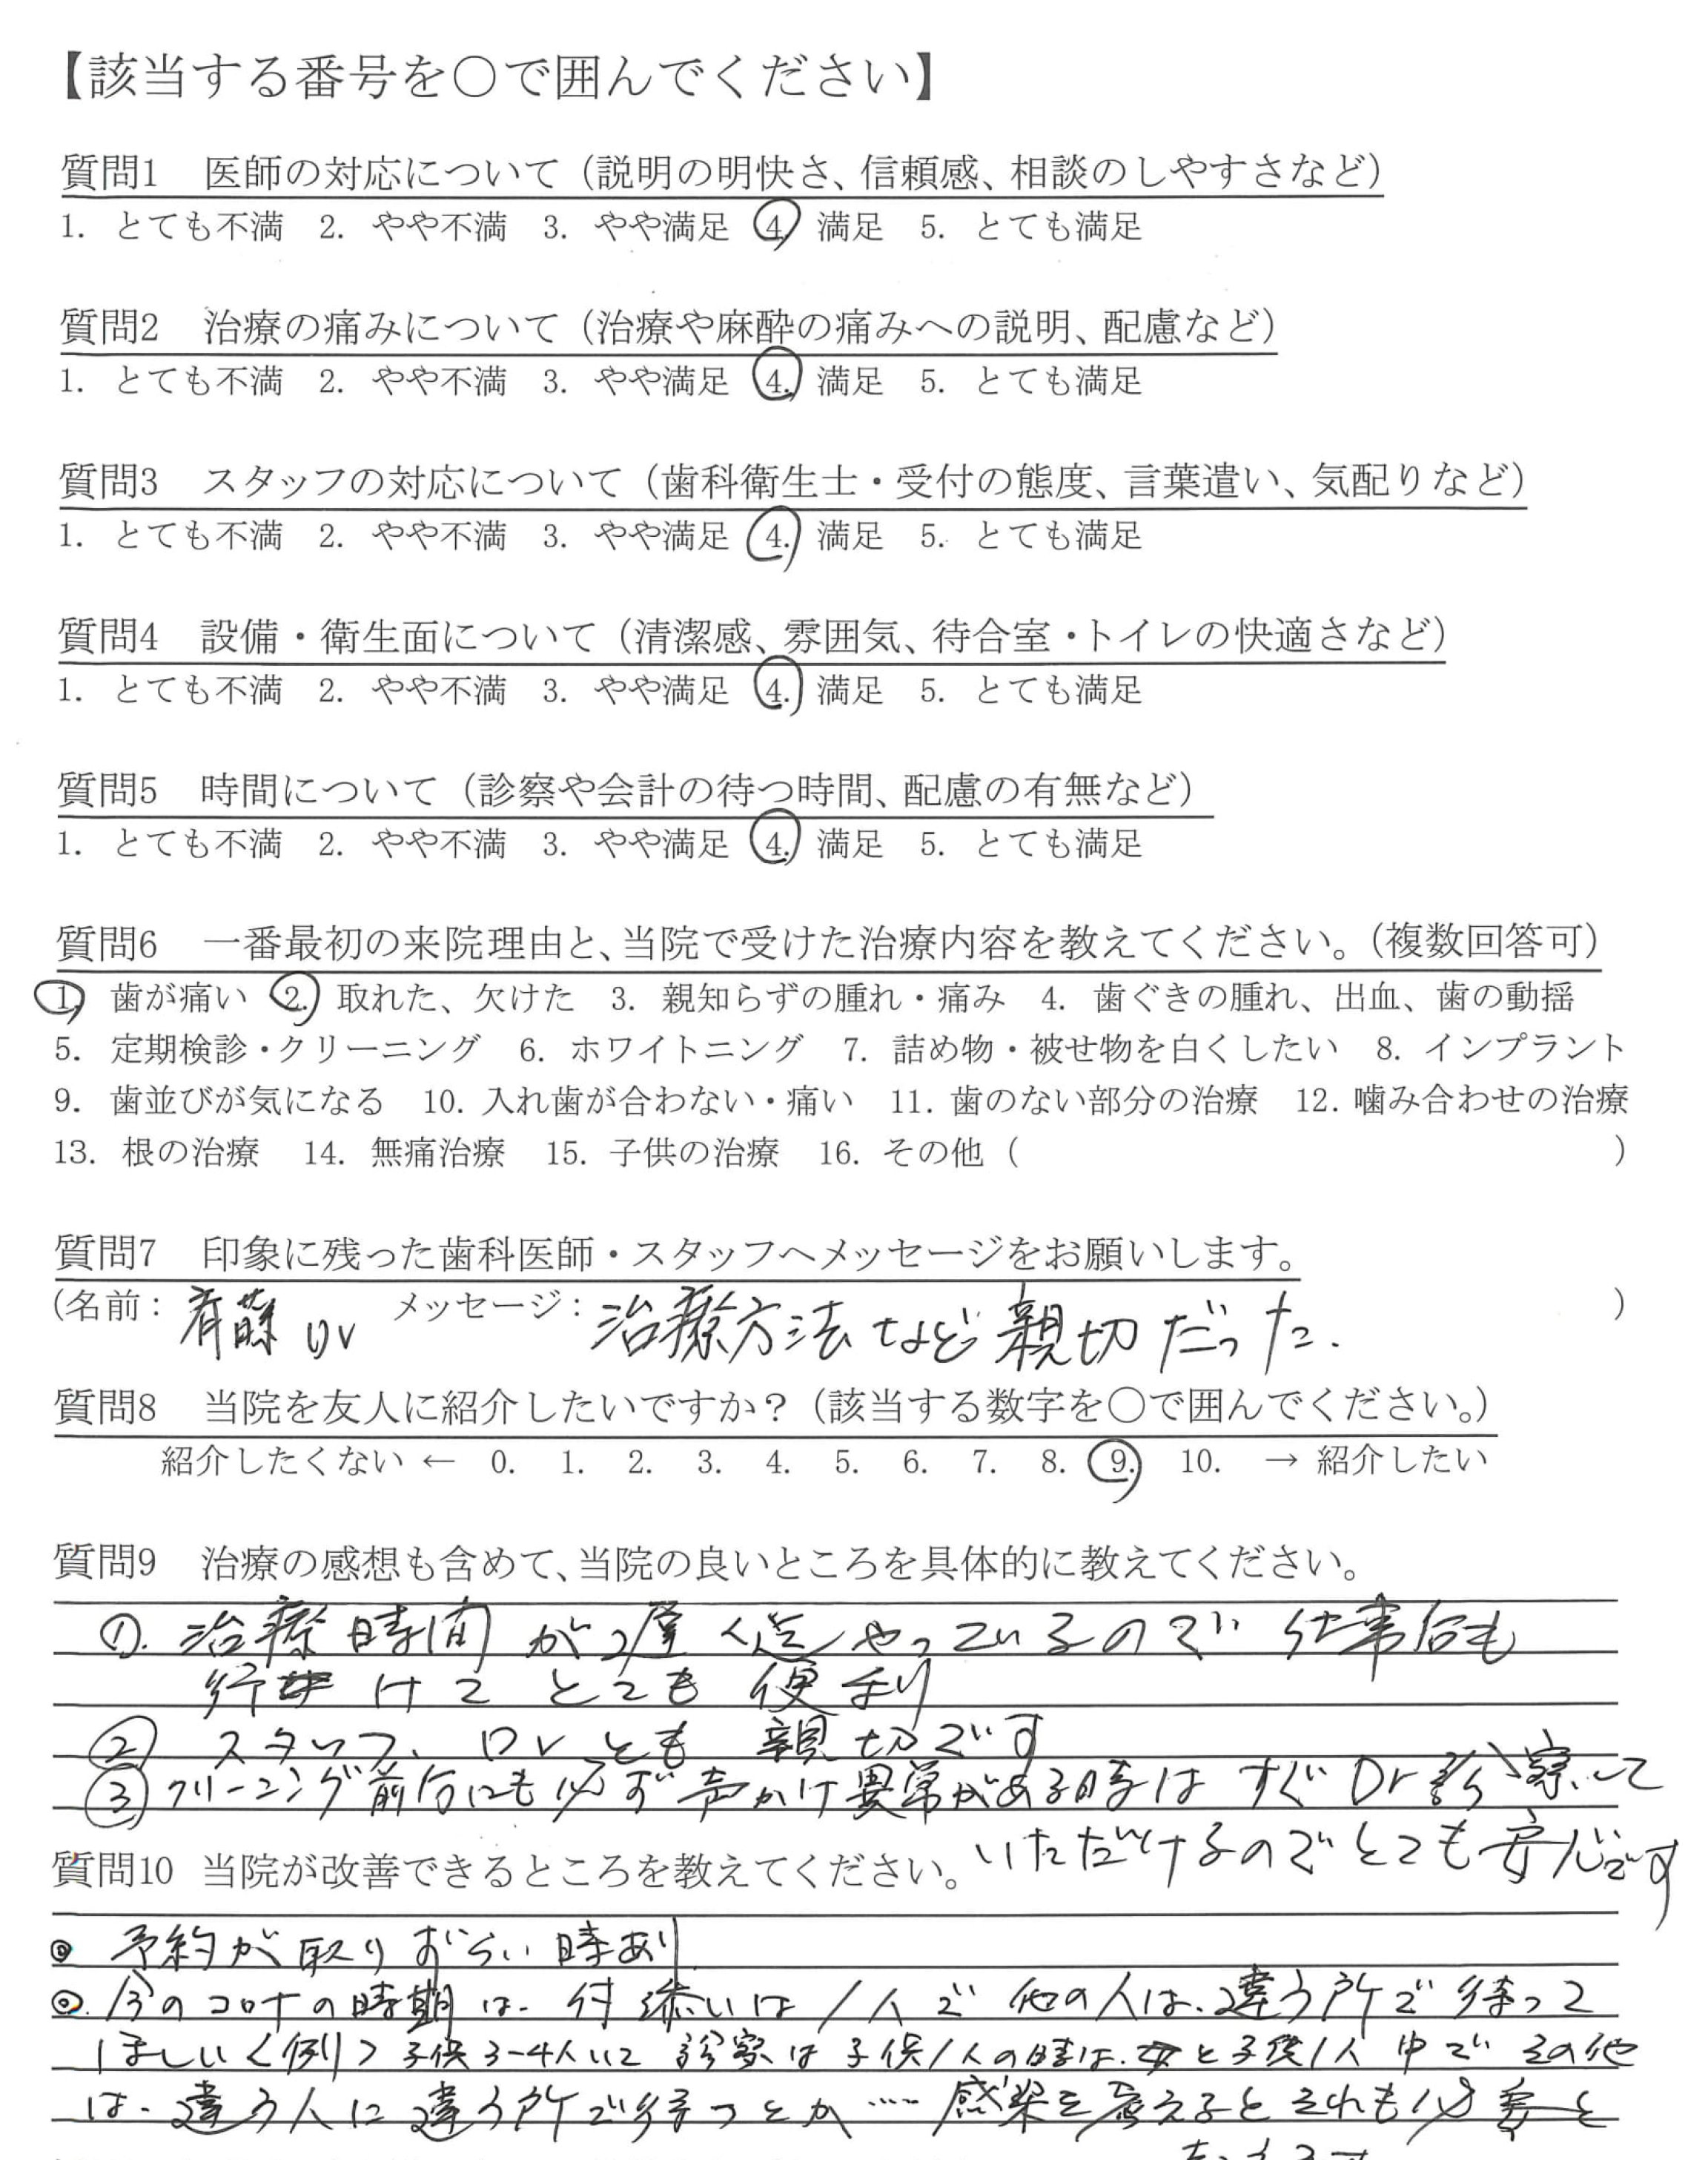 【該当する番号を○で囲んでください】
質問1　医師の対応について（説明の明快さ、信頼感、相談のしやすさなど）
1. とても不満　2. やや不満　3. やや満足　4. 満足　5. とても満足
質問2　治療の痛みについて（治療や麻酔の痛みへの説明、配慮など）
1. とても不満　2. やや不満　3. やや満足　4. 満足　5. とても満足
質問3　スタッフの対応について（歯科衛生士・受付の態度、言葉遣い、気配りなど）
1. とても不満　2. やや不満　3. やや満足　4. 満足　5. とても満足
質問4　設備・衛生面について（清潔感、雰囲気、待合室・トイレの快適さなど）
1. とても不満　2. やや不満　3. やや満足　4. 満足　5. とても満足
質問5　時間について（診察や会計の待つ時間、配慮の有無など）
1. とても不満　2. やや不満　3. やや満足　4. 満足　5. とても満足
質問6　一番最初の来院理由と、当院で受けた治療内容を教えてください。（複数回答可）
1. 歯が痛い　2. 取れた、欠けた　3. 親知らずの腫れ・痛み　4. 歯ぐきの腫れ、出血、歯の動揺
5. 定期検診・クリーニング　6. ホワイトニング　7. 詰め物・被せ物を白くしたい　8. インプラント
9. 歯並びが気になる　10. 入れ歯が合わない・痛い　11. 歯のない部分の治療　12. 噛み合わせの治療
13. 根の治療　14. 無痛治療　15. 子供の治療　16. その他（　）
質問7　印象に残った歯科医師・スタッフへメッセージをお願いします。
（名前：斉藤Dr　メッセージ：治療方法など親切だった.　）
質問8　当院を友人に紹介したいですか？（該当する数字を○で囲んでください。）
紹介したくない ← 0. 1. 2. 3. 4. 5. 6. 7. 8. 9. 10. → 紹介したい
質問9　治療の感想も含めて、当院の良いところを具体的に教えてください。
①. 治療時間が遅くまでやっているので仕事后も
行けてとても便利
② スタッフ、Drとも親切です
③ クリーニング前后にも必ず声かけ異常がある時はすぐDr診察して
いただけるのでとても安心です
質問10 当院が改善できるところを教えてください。
◎ 予約が取りずらい時あり
◎. 今のコロナの時期は、付添いは1人で他の人は、違う所で待って
ほしい＜例＞子供3～4人いて診察は子供1人の時は、と子供1人中でその他
は、違う人に違う所で待つとか……感染を考えるとそれも必要と